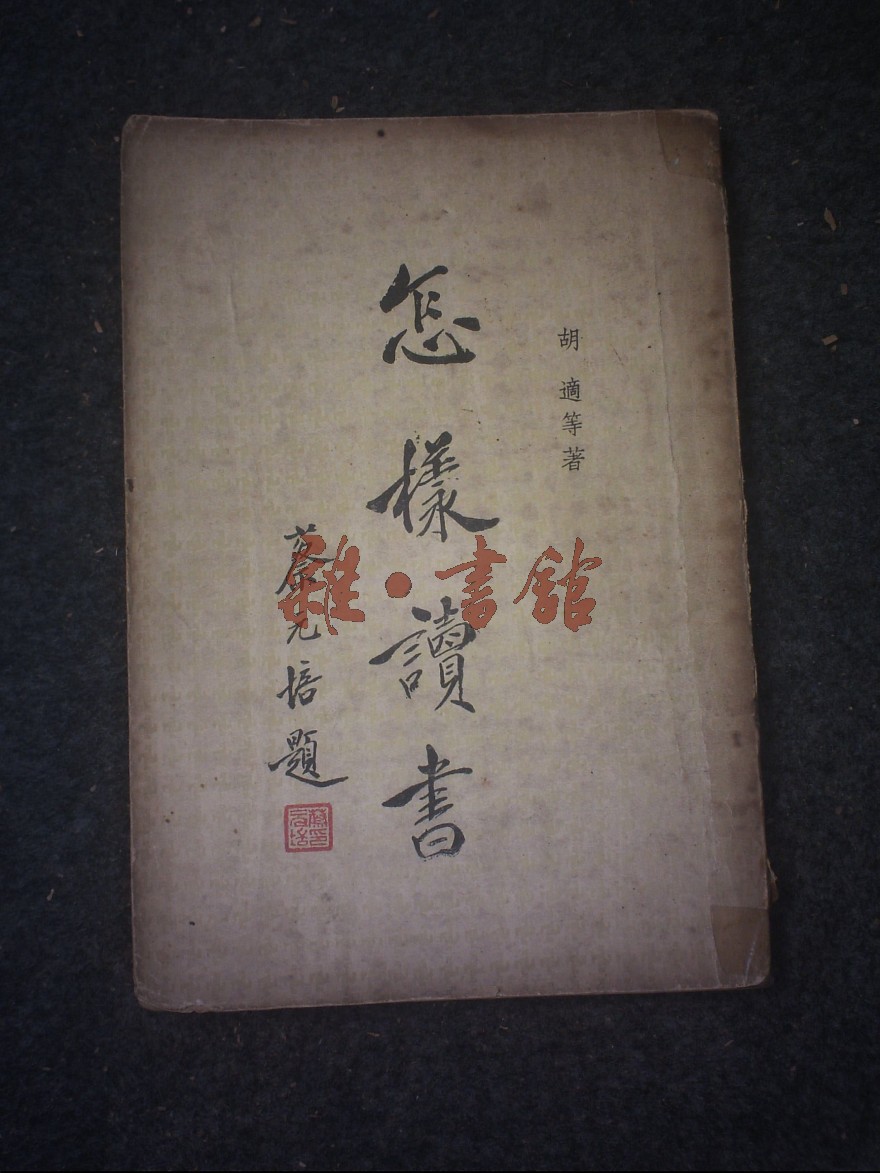 胡適等著
怎樣讀書
蔡元培題
雜·書館